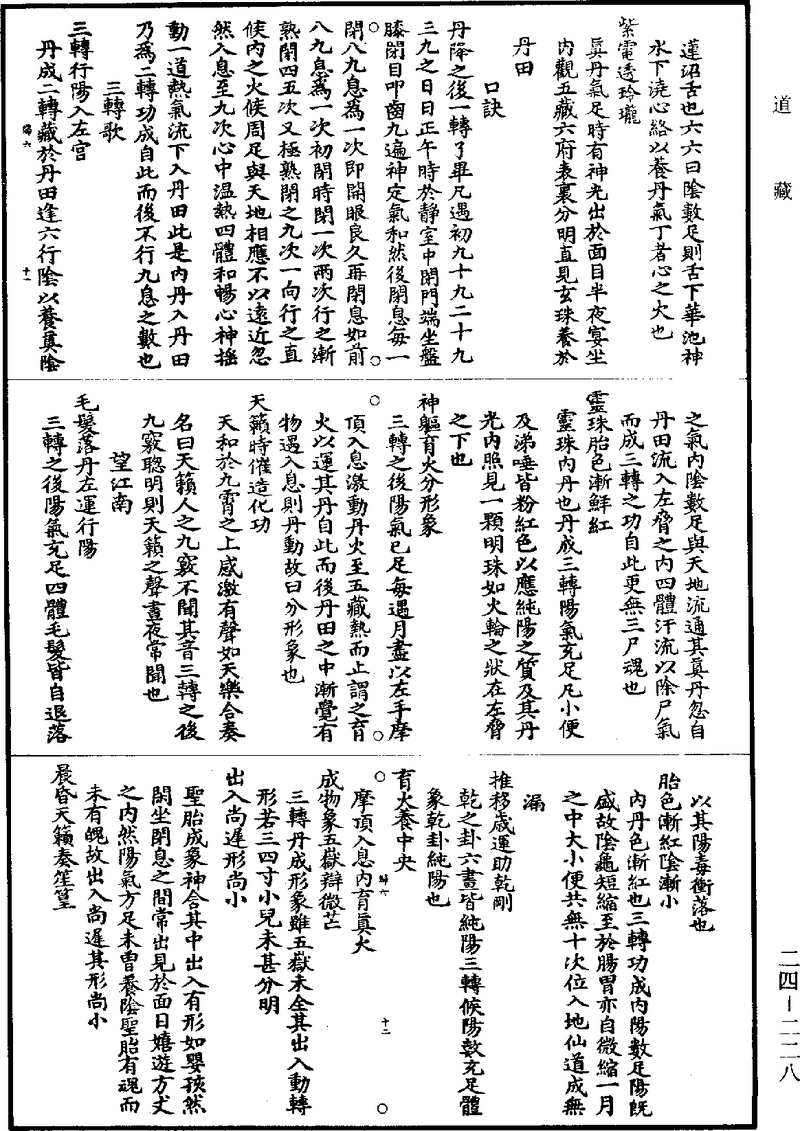 道藏
蓮沼舌也六六曰陰數足則舌下華池神
水下澆心絡以養丹氣丁者心之火也
紫電透玲瓏
真丹氣足時有神光出於面目半夜宴坐
內觀五藏六府表裏分明直見玄珠養於
丹田
口訣
丹降之後一轉了畢凡遇初九十九二十九
三九之日日正午時於靜室中閉門端坐盤
膝閉目叩齒九遍神定氣和然後閉息每一
閉八九息為一次即開眼良久再閉息如前
八九息為一次初閉時閉一次兩次行之漸
熟閉四五次又極熟閉之九次一向行之直
候內之火候周足與天地相應不以遠近忽
然入息至九次心中溫熱四體和暢心神搖
動一道熱氣流下入丹田此是內丹入丹田
乃為二轉功成自此而後不行九息之數也
三轉歌
三轉行陽入左宮
丹成二轉藏於丹田逢六行陰以養真陰
歸六
十一
之氣內陰數足與天地流通其真丹忽自
丹田流入左脅之內四體汗流以除尸氣
而成三轉之功自此更無三尸魂也
靈珠胎色漸鮮紅
靈珠內丹也丹成三轉陽氣充足凡小便
及涕唾皆粉紅色以應純陽之質及其丹
光內照見一顆明珠如火輪之狀在左脅
之下也
神軀育火分形象
三轉之後陽氣已足每遇月盡以左手摩
頂入息激動丹火至五藏熱而止謂之育
火以運其丹自此而後丹田之中漸覺有
物遇入息則丹動故曰分形象也
天籟時催造化功
天和於九霄之上感激有聲如天樂合奏
名曰天籟人之九竅不聞其音三轉之後
九竅聰明則天籟之聲晝夜常聞也
望江南
毛髮落丹左運行陽
三轉之後陽氣充足四體毛髮皆自退落
以其陽毒衝落也
胎色漸紅陰漸小
內丹色漸紅也三轉功成內陽數足陽既
盛故陰龜短縮至於腸胃亦自微縮一月
之中大小便共無十次位入地仙道成無
漏
推移歲運助乾剛
乾之卦六畫皆純陽三轉候陽數充足體
象乾卦純陽也
育火養中央
摩頂入息內育真火
歸六
十二
成物象五嶽辯微芒
三轉丹成形象雖五嶽未全其出入動轉
形若三四寸小兒未甚分明
出入尚遲形尚小
聖胎成象神合其中出入有形如嬰孩然
閑坐閉息之間常出見於面目嬉遊方丈
之內然陽氣方足未曾養陰聖胎有魂而
未有魄故出入尚遲其形尚小
晨昏天籟奏笙篁
二四—二二八